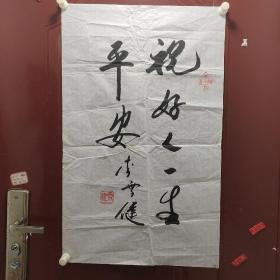 祝好人一生
平安 李雪健